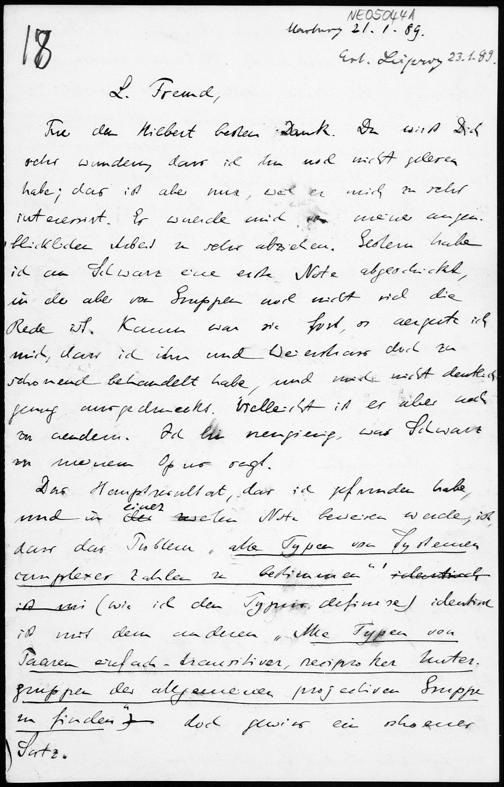 NE05044A
18
Marburg 21.1.89.
Erh. Leipzig 23.1.89.
L. Freund,
Für den Hilbert besten Dank. Du wirst Dich
sehr wundern, dass ich ihn noch nicht gelesen
habe; das ist aber nur, weil er mich zu sehr
interessirt. Er wuerde mich von meiner augen-
blicklichen Arbeit zu sehr abziehen. Gestern habe
ich an Schwarz eine erste Note abgeschickt,
in der aber von Gruppen noch nicht viel die
Rede ist. Kaum war sie fort, so aergerte ich
mich, dass ich ihn und Weierstrass doch zu
schonend behandelt habe, und mich nicht deutlich
genug ausgedrueckt. Vielleicht ist es aber noch
zu aendern. Ich bin neugierig, was Schwarz
zu meinem Opus sagt.
Das Hauptresultat, das ich gefunden habe,
und in einer Note beweisen werde, ist
dass das Problem „alle Typen von Systemen
complexer Zahlen zu bestimmen" identisch
ist mit (wie ich den Typus definire) identisch
ist mit dem anderen „Alle Typen von
Paaren einfach-transitiver, reciproker Unter-
gruppen der allgemeinen projectiven Gruppe
zu finden" doch gewiss ein schoener
Satz.